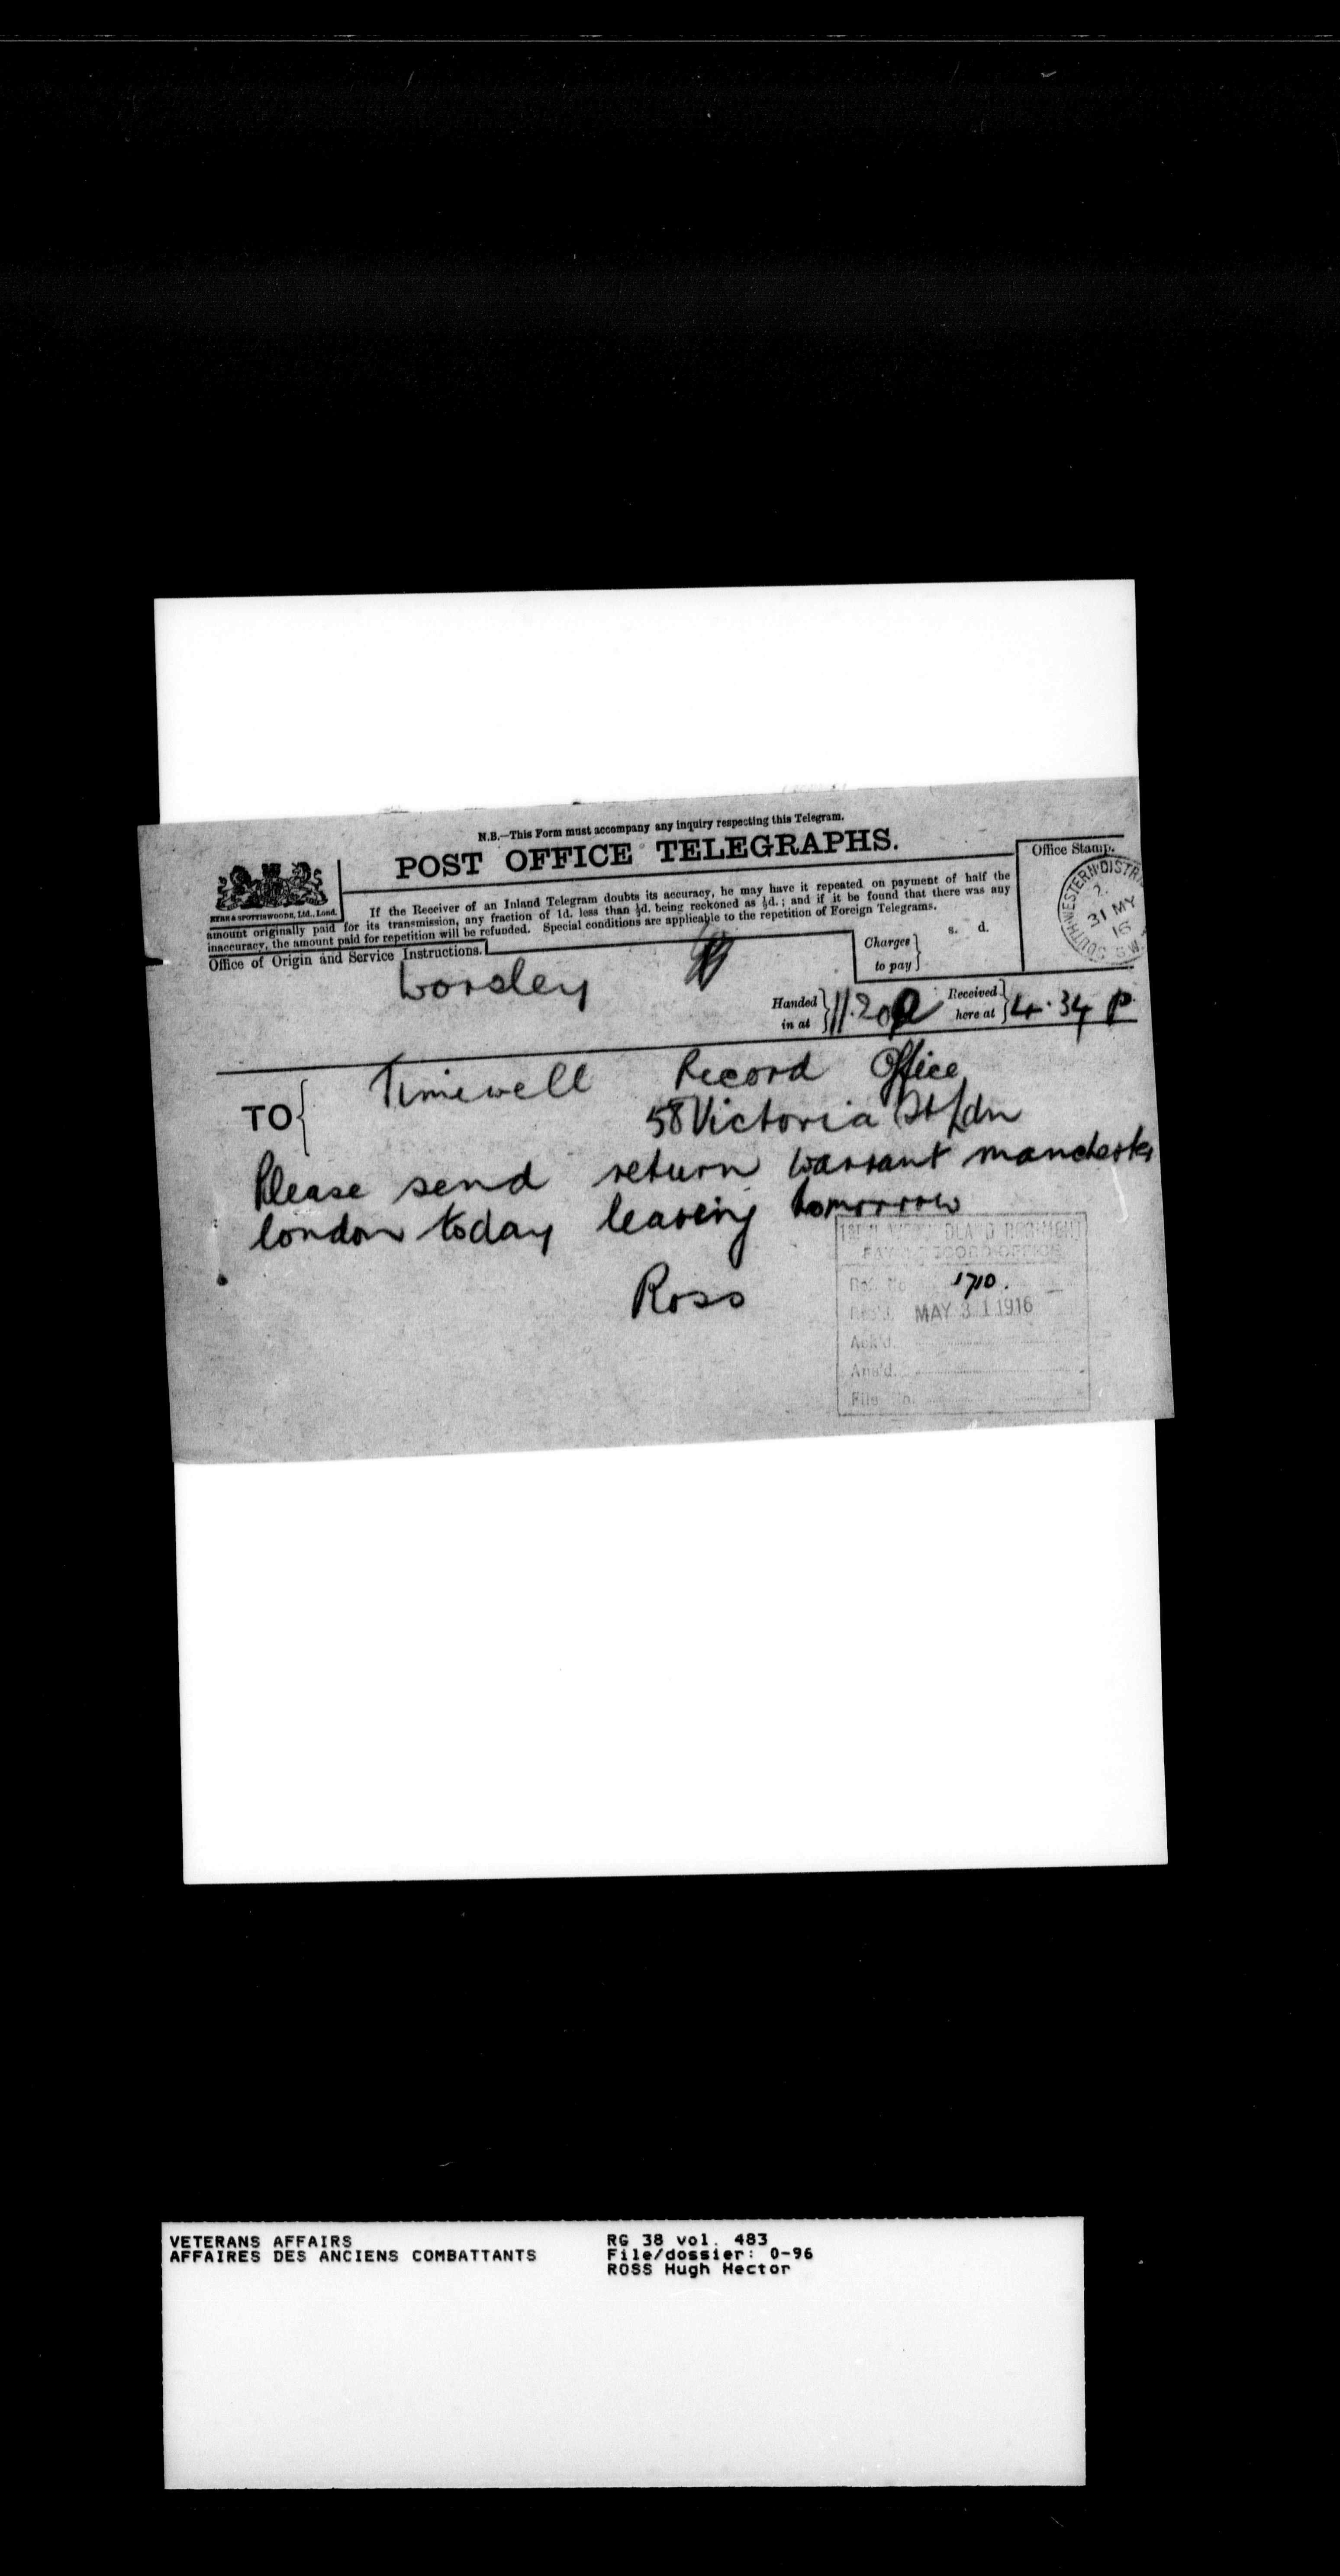 N.B.—This Form must accompany any inquiry respecting this Telegram.
POST OFFICE TELEGRAPHS.
If the Receiver of an Inland Telegram doubts its accuracy, he may have it repeated on payment of half the
amount originally paid for its transmission, any fraction of 1d. less than ½d. being reckoned as ½d.; and if it be found that there was any
inaccuracy, the amount paid for repetition will be refunded. Special conditions are applicable to the repetition of Foreign Telegrams.
EYRE & SPOTTISWOODE, Ltd., Lond.
Office Stamp.
SOUTH-WESTERN DISTR
31 MY
16
S.W.
Office of Origin and Service Instructions.
Worsley
Charges
to pay
s. d.
Handed
in at
11.20a
Received
here at
4.34 p
TO
Timewell Record Office
58 Victoria St Ldn
Please send return warrant manchester
london today leaving tomorrow
Ross
PAY & RECORD OFFICE
Ref. No. 1710.
Rec'd. MAY 31 1916
Ack'd.
Ans'd.
File No.
VETERANS AFFAIRS
AFFAIRES DES ANCIENS COMBATTANTS
RG 38 vol. 483
File/dossier: 0-96
ROSS Hugh Hector